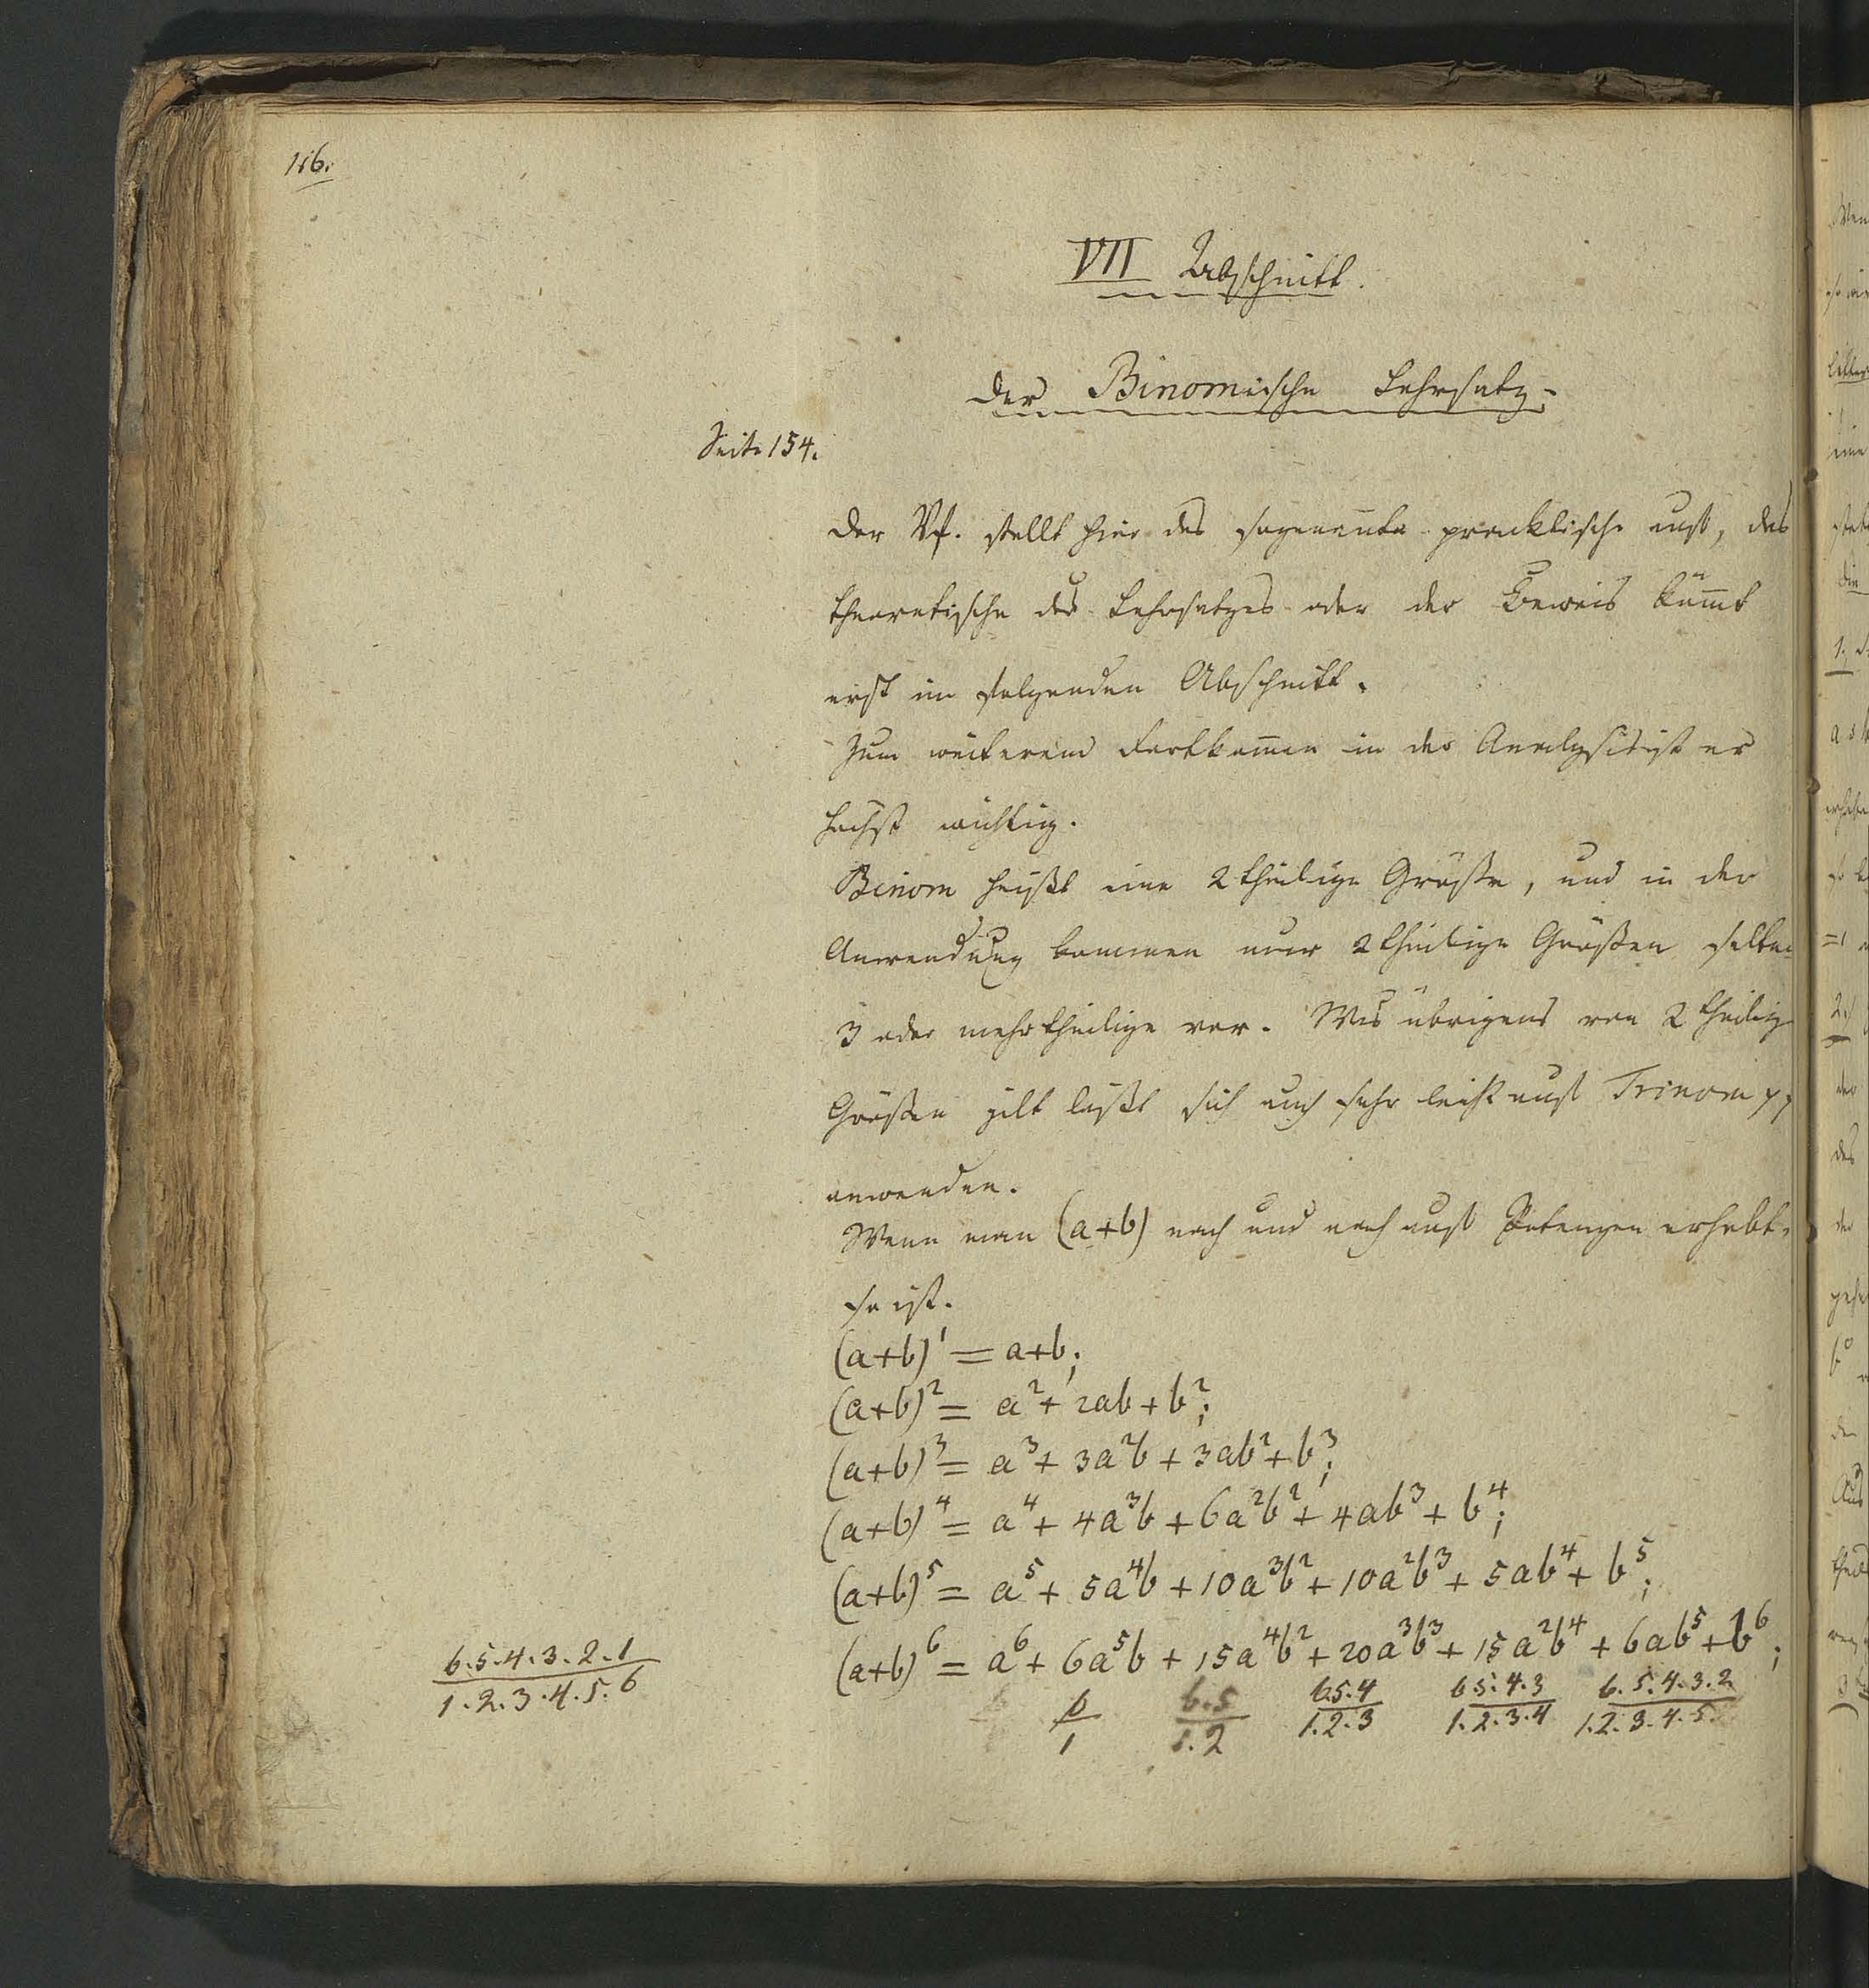 116.
VII Abschnitt.
Der Binomische Lehrsatz.
Seite 154.
Der Vf. stellt hier das sogenan̅te pracktische auf, das
theoretische des Lehrsatzes oder der Beweis köm̅t
erst im folgenden Abschnitt.
Zum weiterem Fortkom̅en in der Analysis ist er
höchst wichtig.
Binom heißt eine 2theilige Größe, und in der
Anwendung kommen nur 2theilige Größen selten
3 oder mehrtheilige vor. Was übrigens von 2theilig
Größen gilt läßt sich auch sehr leicht auf Trinom pp
anwenden.
Wenn man (a+b) nach und nach auf Potenzen erhebt,
so ist.
(a+b)¹ = a+b;
(a+b)² = a² + 2ab + b²;
(a+b)³ = a³ + 3a²b + 3ab² + b³;
(a+b)⁴ = a⁴ + 4a³b + 6a²b² + 4ab³ + b⁴;
(a+b)⁵ = a⁵ + 5a⁴b + 10a³b² + 10a²b³ + 5ab⁴ + b⁵;
(a+b)⁶ = a⁶ + 6a⁵b + 15a⁴b² + 20a³b³ + 15a²b⁴ + 6ab⁵ + b⁶;
6.5.4.3.2.1
1.2.3.4.5.6
6 6.5 6.5.4 6.5.4.3 6.5.4.3.2
1 1.2 1.2.3 1.2.3.4 1.2.3.4.5